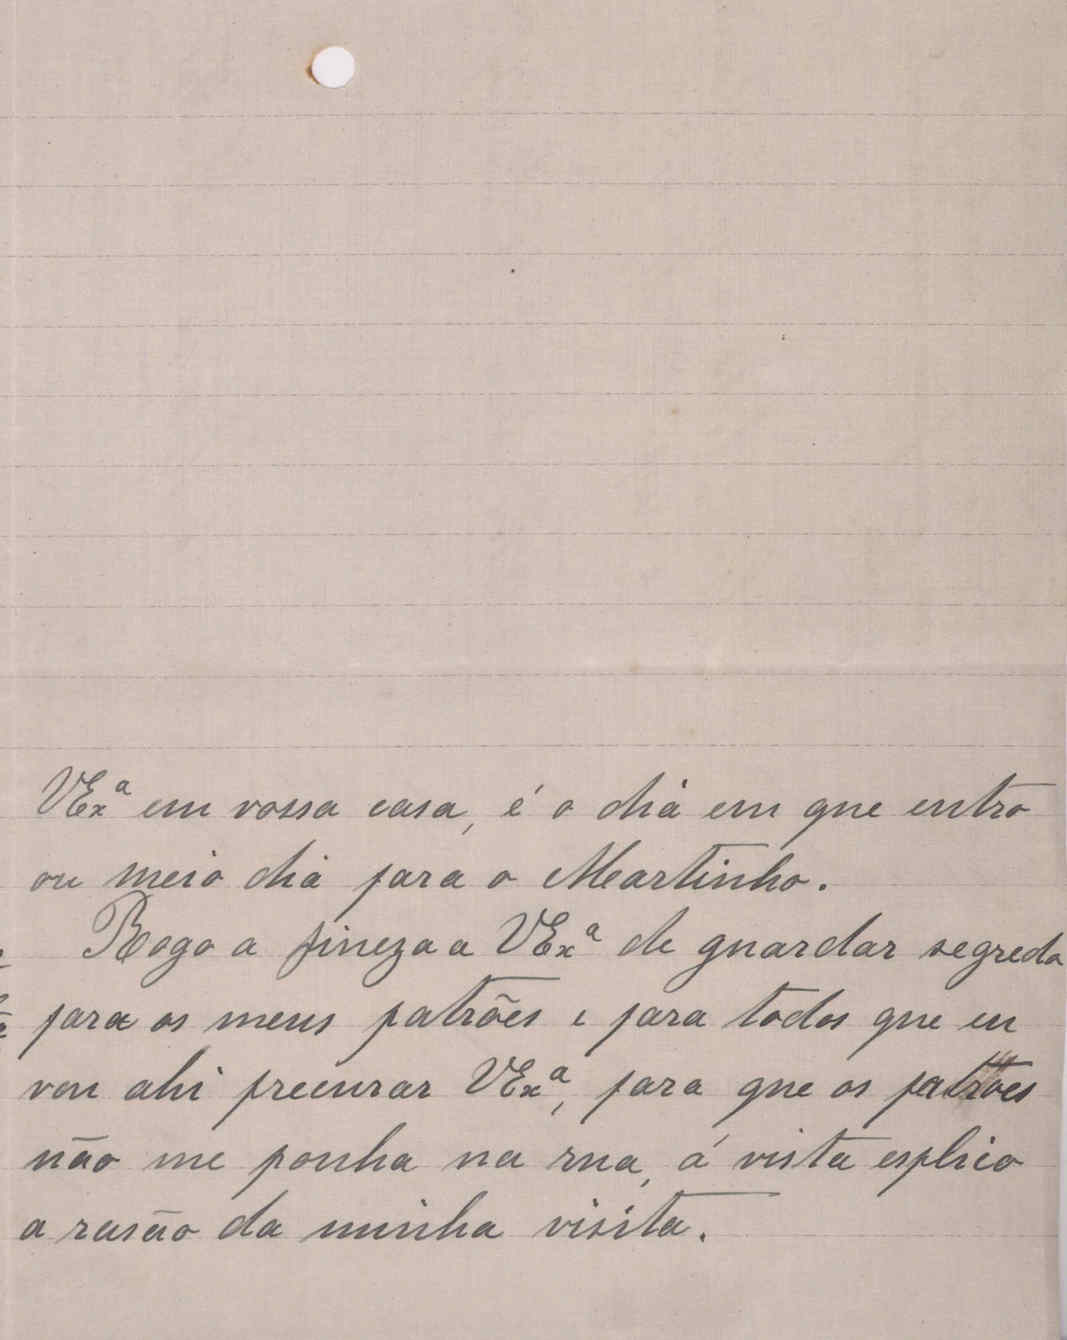 VExª em vossa casa, é o dia em que entro
ou meio dia para o Martinho.
Rogo a fineza a VExª de guardar segredo
para os meus patrões e para todos que eu
vou ahi precurar VExª, para que os patrões
não me ponha na rua, á vista esplico
a rasão da minha visita.